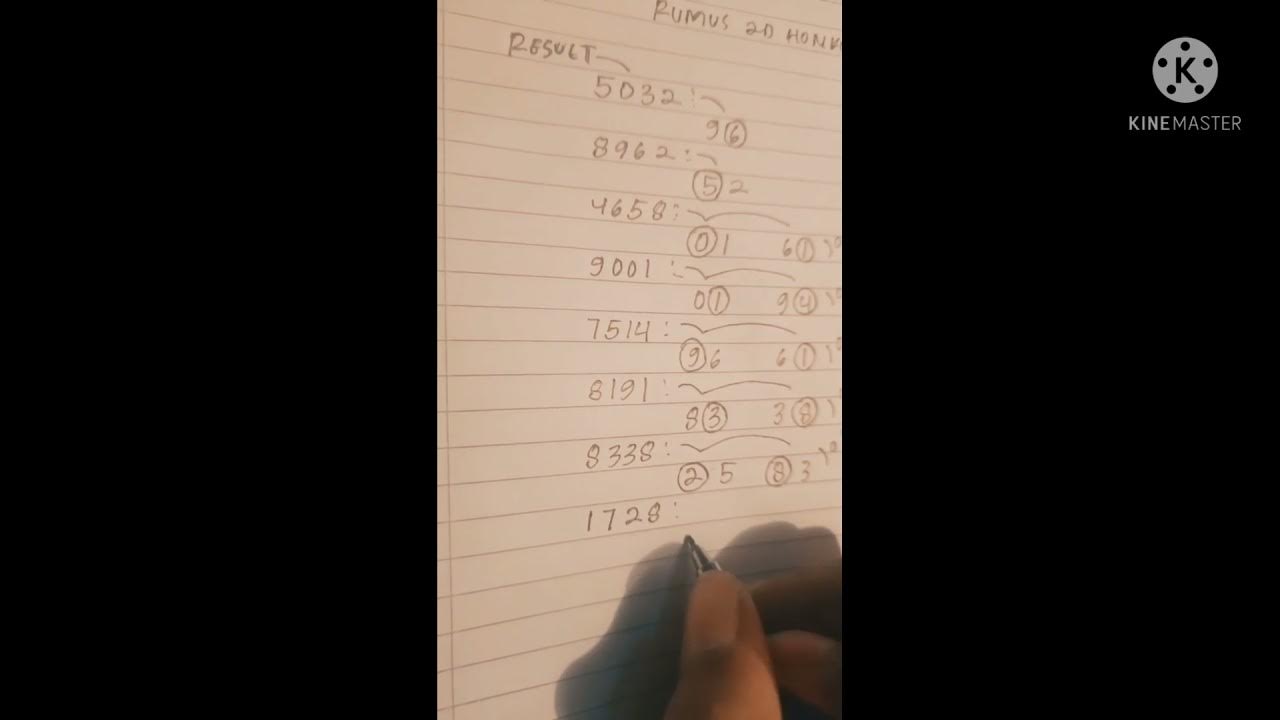 RUMUS 2D HONK
RESULT
5032:
96
8962:
52
4658:
01 61
9001:
01 94
7514:
96 61
8191:
83 38
8338:
25 83
1728:
K
KINEMASTER